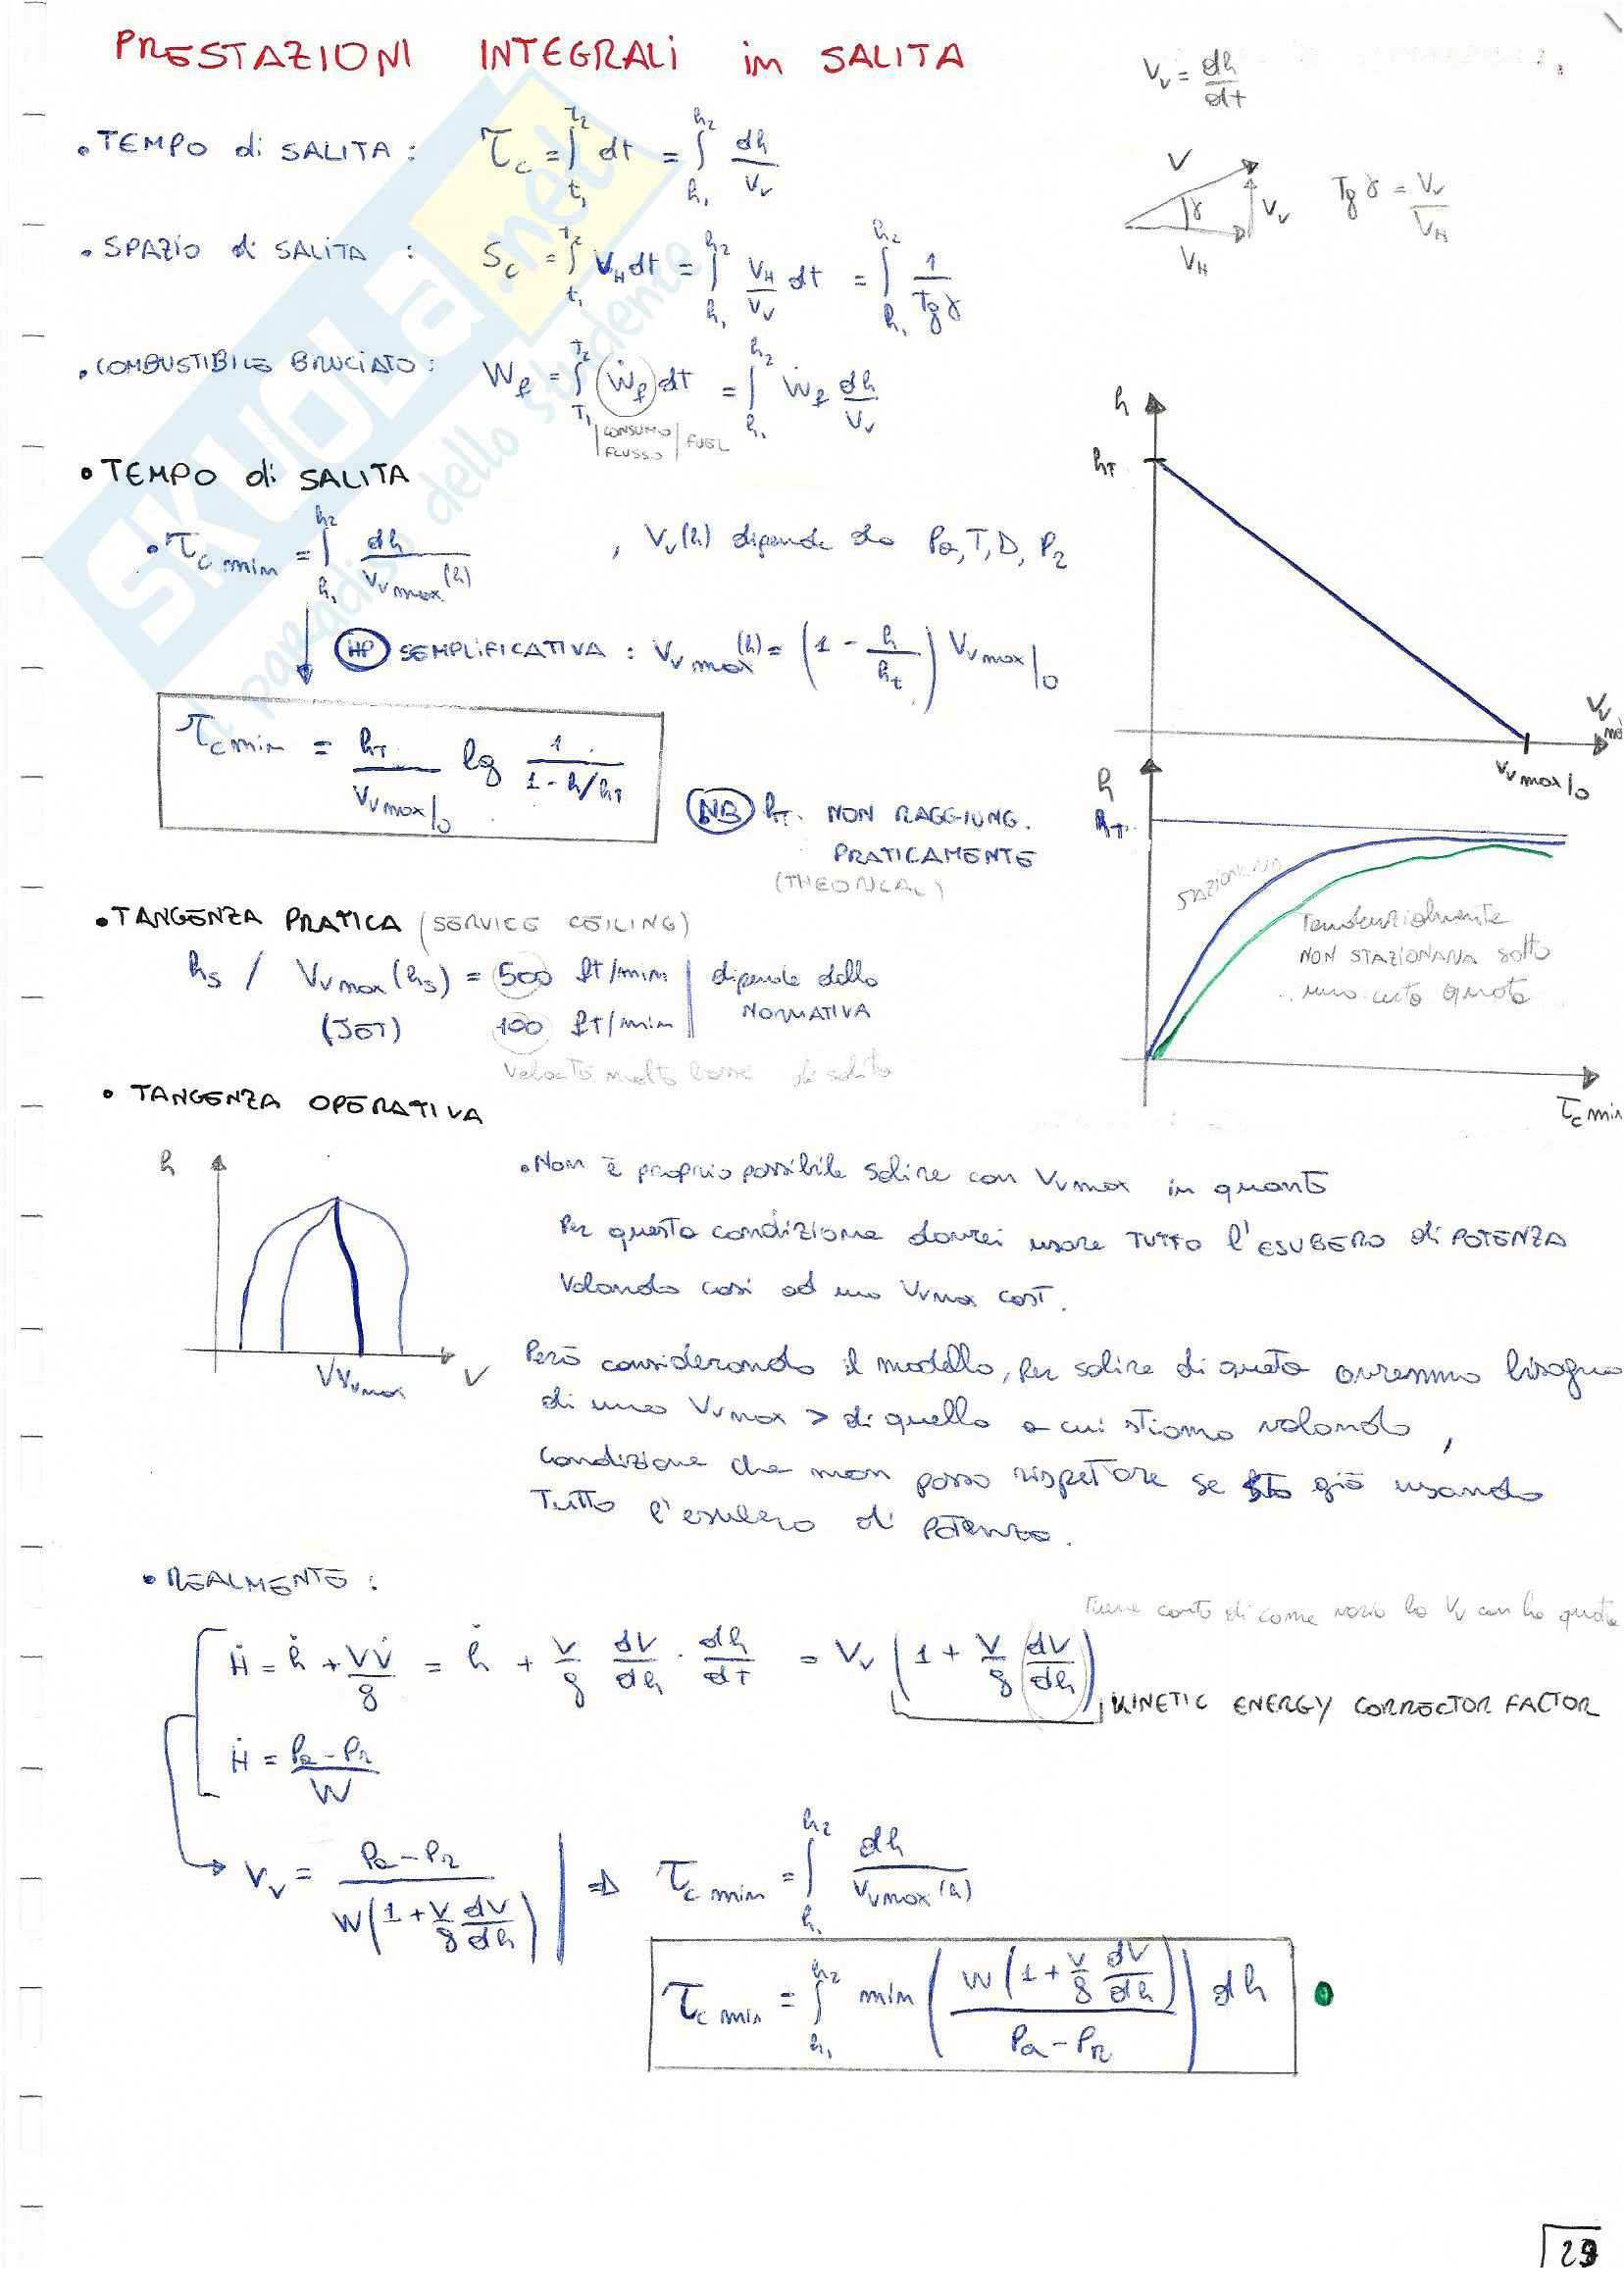 PRESTAZIONI INTEGRALI in SALITA
V_v = dh/dt
• TEMPO di SALITA : τ_c = ∫_{t_1}^{t_2} dt = ∫_{h_1}^{h_2} dh/V_v
V
γ
V_v
V_H
Tg γ = V_v/V_H
• SPAZIO di SALITA : S_c = ∫_{t_1}^{t_2} V_H dt = ∫_{h_1}^{h_2} V_H/V_v dt = ∫_{h_1}^{h_2} 1/Tg γ
• COMBUSTIBILE BRUCIATO : W_f = ∫_{T_1}^{T_2} (Ẇ_f) dt = ∫_{h_1}^{h_2} Ẇ_f dh/V_v
CONSUMO
FLUSSO
FUEL
• TEMPO di SALITA
• τ_{c min} = ∫_{h_1}^{h_2} dh/V_{v max}(h) , V_v(h) dipende da Pa, T, D, P_2
HP SEMPLIFICATIVA : V_{v max}(h) = (1 - h/h_t) V_{v max}|_0
τ_{c min} = h_T/V_{v max}|_0 lg 1/(1 - h/h_T)
NB h_T NON RAGGIUNG.
PRATICAMENTE
(THEORICAL)
h
h_T
V_v max
V_{v max}|_0
h
h_T
STAZIONARIA
Tendenzialmente
NON STAZIONARIA sotto
una certa quota
τ_{c min}
• TANGENZA PRATICA (SERVICE CEILING)
h_s / V_{v max}(h_s) = 500 ft/min | dipende dalla
(JET) 100 ft/min | NORMATIVA
Velocità molto basse di salita
• TANGENZA OPERATIVA
h
V_{Vvmax}
V
• Non è proprio possibile salire con V_{vmax} in quanto
Per questa condizione dovrei usare TUTTO l'ESUBERO di POTENZA
Volando così ad una V_{vmax} cost.
Però considerando il modello, per salire di quota avremmo bisogno
di una V_{vmax} > di quella a cui stiamo volando,
Condizione che non posso rispettare se sto già usando
Tutto l'esubero di Potenza.
• REALMENTE :
Tiene conto di come varia la V_v con la quota
Ḣ = ḣ + VV̇/g = ḣ + V/g dV/dh · dh/dT = V_v (1 + V/g dV/dh)
KINETIC ENERGY CORRECTOR FACTOR
Ḣ = (Pa - Pr)/W
→ V_v = (Pa - Pr)/(W(1 + V/g dV/dh)) ⇒ τ_{c min} = ∫_{h_1}^{h_2} dh/V_{vmax}(h)
τ_{c min} = ∫_{h_1}^{h_2} min (W(1 + V/g dV/dh)/(Pa - Pr)) dh
29
SKUOLA.net
il paradiso dello studente